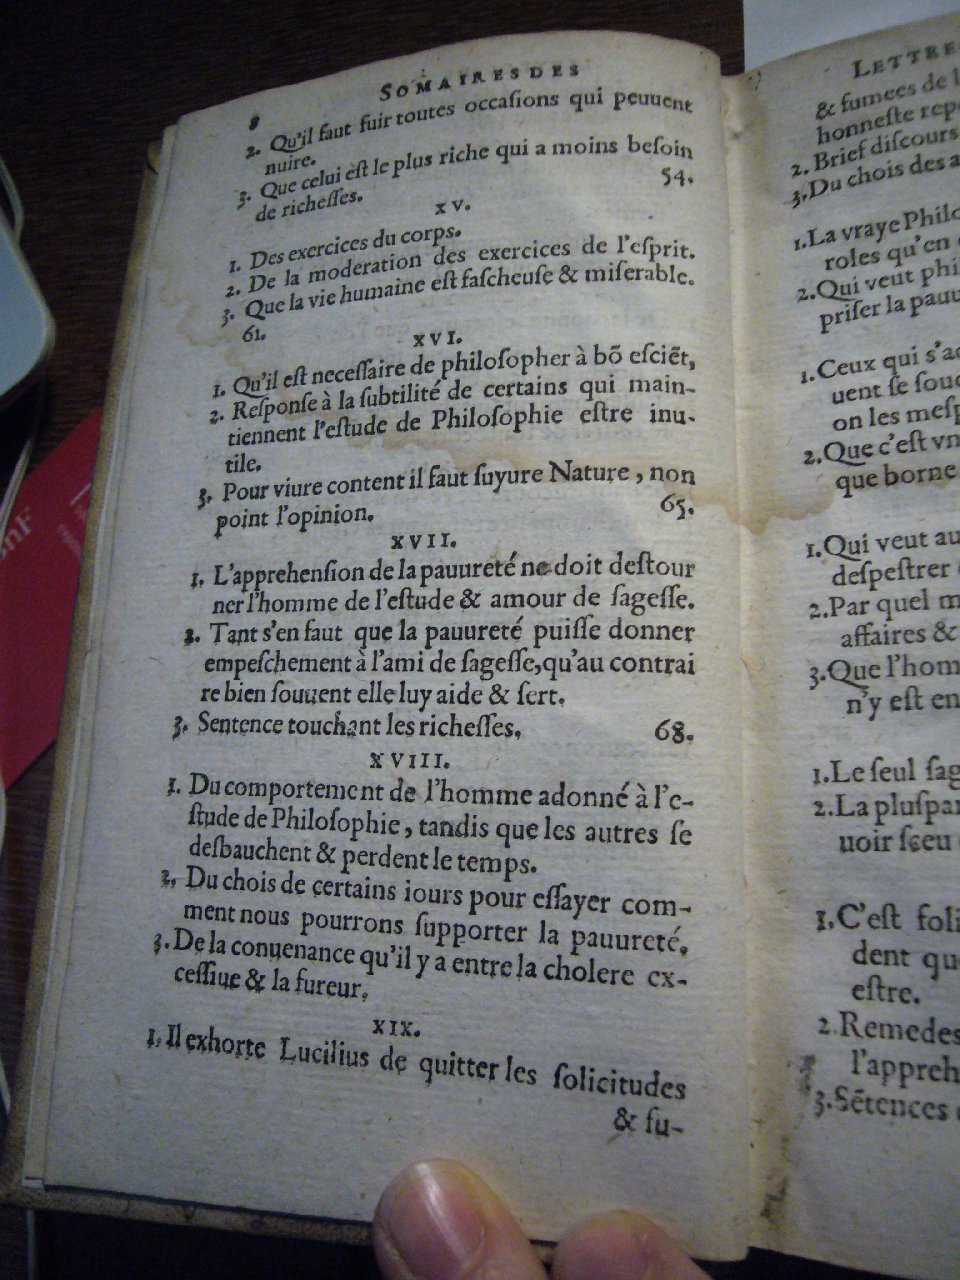 8 SOMAIRES DES
2. Qu'il faut fuir toutes occaſions qui peuuent
nuire.
3. Que celui eſt le plus riche qui a moins beſoin
de richeſſes. 54.
XV.
1. Des exercices du corps.
2. De la moderation des exercices de l'eſprit.
3. Que la vie humaine eſt faſcheuſe & miſerable.
61.
XVI.
1. Qu'il eſt neceſſaire de philoſopher à bõ eſciẽt,
2. Reſponſe à la ſubtilité de certains qui main-
tiennent l'eſtude de Philoſophie eſtre inu-
tile.
3. Pour viure content il faut ſuyure Nature, non
point l'opinion. 65.
XVII.
1. L'apprehenſion de la pauureté ne doit deſtour
ner l'homme de l'eſtude & amour de ſageſſe.
2. Tant s'en faut que la pauureté puiſſe donner
empeſchement à l'ami de ſageſſe, qu'au contrai
re bien ſouuent elle luy aide & ſert.
3. Sentence touchant les richeſſes. 68.
XVIII.
1. Du comportement de l'homme adonné à l'e-
ſtude de Philoſophie, tandis que les autres ſe
deſbauchent & perdent le temps.
2. Du chois de certains iours pour eſſayer com-
ment nous pourrons ſupporter la pauureté.
3. De la conuenance qu'il y a entre la cholere ex-
ceſſiue & la fureur.
XIX.
1. Il exhorte Lucilius de quitter les ſolicitudes
& ſu-
LETTRE
& fumees de l
honneſte rep
2. Brief diſcours
3. Du chois des a
1. La vraye Philo
roles qu'en
2. Qui veut phi
priſer la pauu
1. Ceux qui s'ac
uent ſe ſouc
on les meſp
2. Que c'eſt vn
que borne
1. Qui veut au
deſpeſtrer
2. Par quel m
affaires &
3. Que l'hom
n'y eſt en
1. Le ſeul ſag
2. La pluſpar
uoir ſceu
1. C'eſt foli
dent qu
eſtre.
2. Remedes
l'appreh
3. Sẽtences